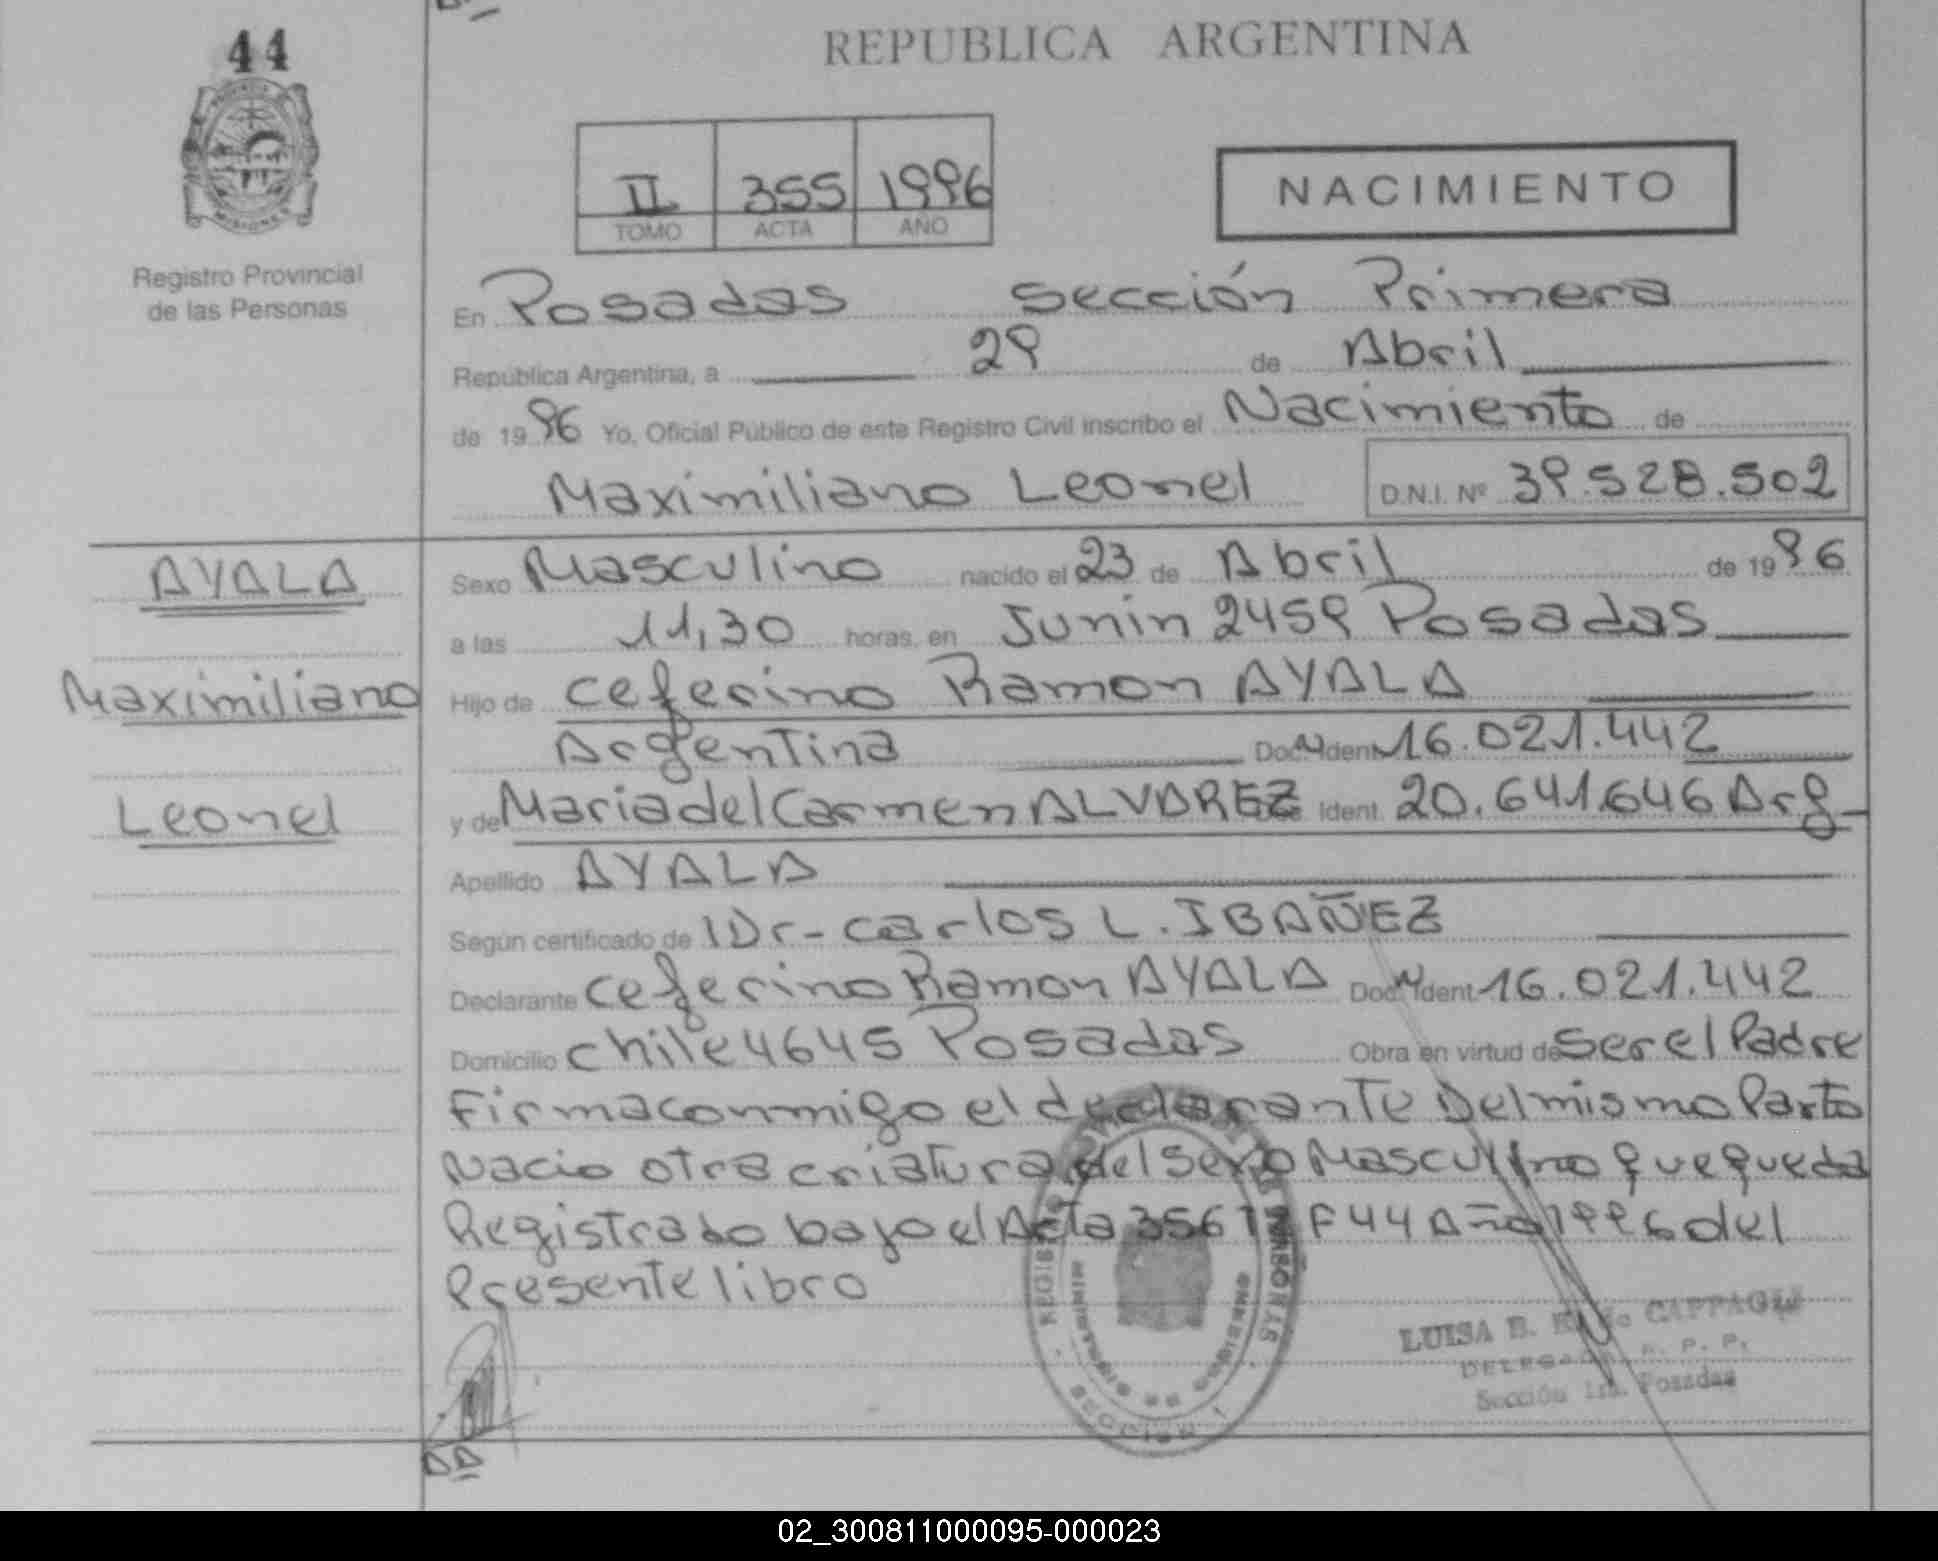 44
REPUBLICA ARGENTINA
II 355 1996
TOMO ACTA AÑO
NACIMIENTO
Registro Provincial
de las Personas
En Posadas Sección Primera
República Argentina, a 29 de Abril
de 1996 Yo, Oficial Público de este Registro Civil inscribo el Nacimiento de
Maximiliano Leonel D.N.I. Nº 39.528.502
AYALA
Maximiliano
Leonel
Sexo Masculino nacido el 23 de Abril de 1996
a las 11,30 horas, en Junin 2459 Posadas
Hijo de Ceferino Ramon AYALA
Argentina Doc. Ident. 16.021.442
y de Maria del Carmen ALVAREZ Ident. 20.641.646 Arg
Apellido AYALA
Según certificado de Dr- Carlos L. IBAÑEZ
Declarante Ceferino Ramon AYALA Doc. Ident. 16.021.442
Domicilio Chile 4645 Posadas Obra en virtud de Ser el Padre
Firma conmigo el declarante Del mismo Parto
Nacio otra criatura del Sexo Masculino que queda
Registrado bajo el Acta 356 F 44 Año 1996 del
Presente libro
LUISA E. de CAPPAGLI
DELEGADA R. P. P.
Sección 1ra. Posadas
02_300811000095-000023